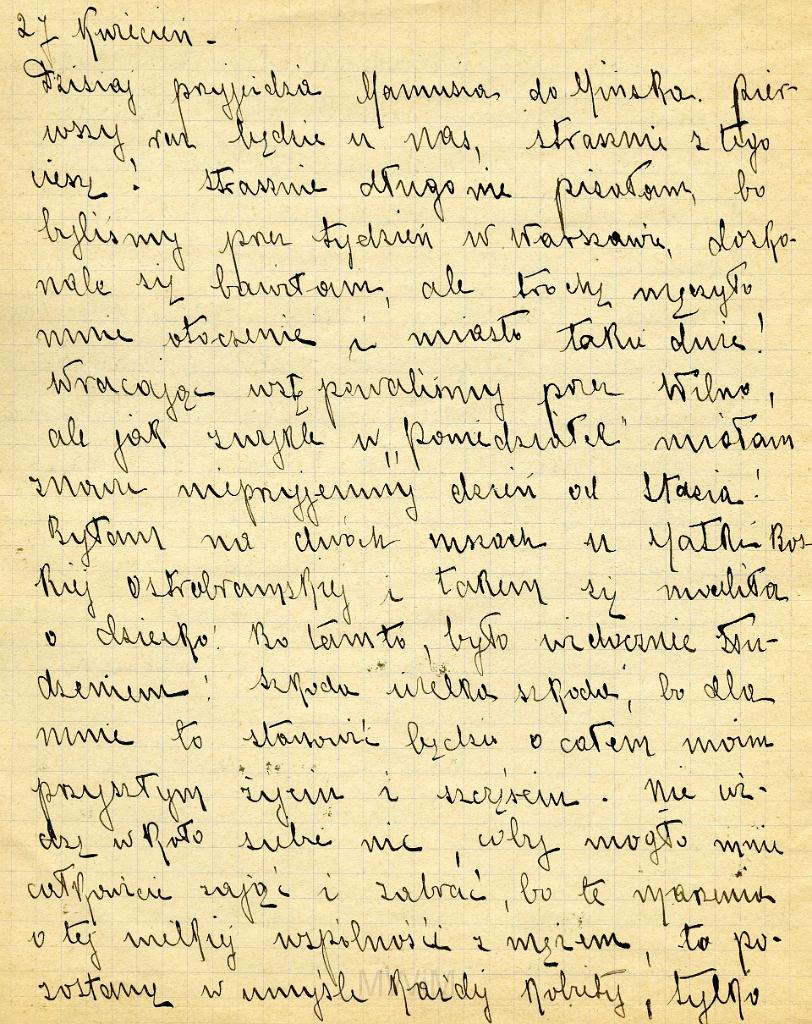 27 Kwiecień -
Dzisiaj przyjeżdża Mamusia do Mińska. Pier-
wszy raz będzie u nas, strasznie z tego
cieszę! Strasznie długo nie pisałam, bo
byliśmy przez tydzień w Warszawie, dosko-
nale się bawiłam, ale trochę męczyło
mnie otoczenie i miasto takie duże!
Wracając wstępowaliśmy przez Wilno,
ale jak zwykle w „Poniedziałek" miałam
znowu nieprzyjemny dzień od Stasia!
Byłam na dwóch mszach u Matki Bos-
kiej Ostrobramskiej i takem się modliła
o dziecko! Bo tamto, było widocznie złu-
dzeniem! Szkoda wielka szkoda, bo dla
mnie to stanowić będzie o całem moim
przyszłym życiu i szczęściu. Nie wi-
dzę wkoło siebie nic, coby mogło mnie
całkowicie zająć i zabrać, bo te marzenia
o tej wielkiej wspólności z mężem, to po-
zostaną w umyśle każdej kobiety, tylko